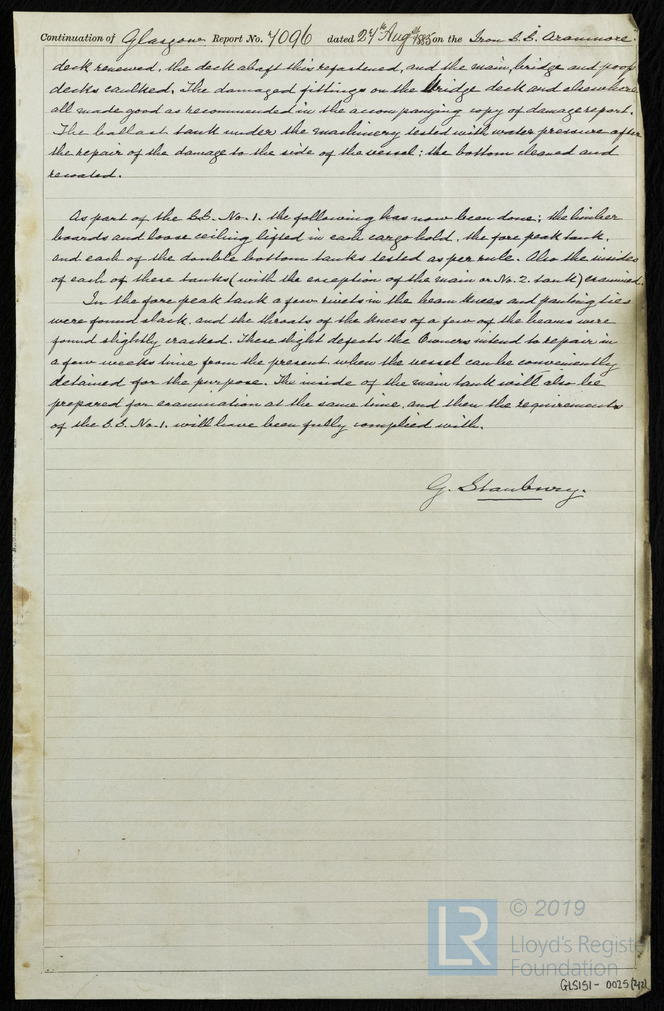 Continuation of Glasgow Report No. 7096 dated 27th Augst 1885 on the Iron S.S. Aranmore.
deck renewed, the deck abaft this refastened, and the main, bridge and poop
decks caulked. The damaged fittings on the bridge deck and elsewhere
all made good as recommended in the accompanying copy of damage report.
The ballast tank under the machinery tested with water pressure after
the repair of the damage to the side of the vessel; the bottom cleaned and
recoated.
As part of the S.S. No. 1. the following has now been done; the limber
boards and loose ceiling lifted in each cargo hold, the fore peak tank,
and each of the double bottom tanks tested as per rule. Also the insides
of each of these tanks (with the exception of the main or No. 2. tank) examined.
In the fore peak tank a few rivets in the beam knees and panting ties
were found slack, and the throats of the knees of a few of the beams were
found slightly cracked. These slight defects the Owners intend to repair in
a few weeks time from the present when the vessel can be conveniently
detained for the purpose. The inside of the main tank will also be
prepared for examination at the same time, and then the requirements
of the S.S. No. 1. will have been fully complied with.
G. Stanbury.
LR
© 2019
Lloyd's Register
Foundation
GLS151-0025(2/2)